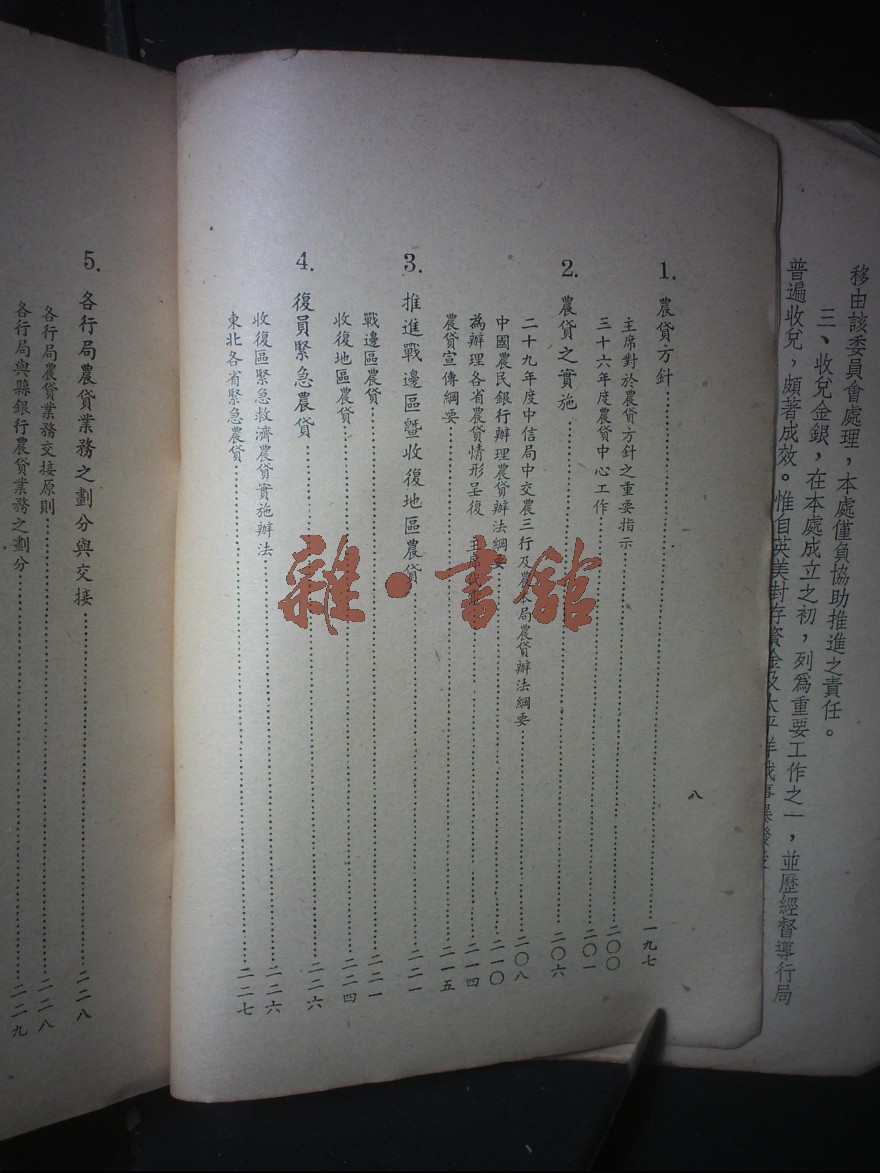 移由該委員會處理，本處僅負協助推進之責任。
三、收兌金銀，在本處成立之初，列爲重要工作之一，並歷經督導行局
普遍收兌，頗著成效。惟自英美封存資金及太平洋戰事爆發
八
1. 農貸方針 一九七
主席對於農貸方針之重要指示 二〇〇
三十六年度農貸中心工作 二〇一
2. 農貸之實施 二〇六
二十九年度中信局中交農三行及農本局農貸辦法綱要 二〇八
中國農民銀行辦理農貸辦法綱要 二一〇
為辦理各省農貸情形呈復 主席 二一四
農貸宣傳綱要 二一五
3. 推進戰邊區暨收復地區農貸 二二一
戰邊區農貸 二二一
收復地區農貸 二二四
4. 復員緊急農貸 二二六
收復區緊急救濟農貸實施辦法 二二六
東北各省緊急農貸 二二七
5. 各行局農貸業務之劃分與交接 二二八
各行局農貸業務交接原則 二二八
各行局與縣銀行農貸業務之劃分 二二九
雜·書館